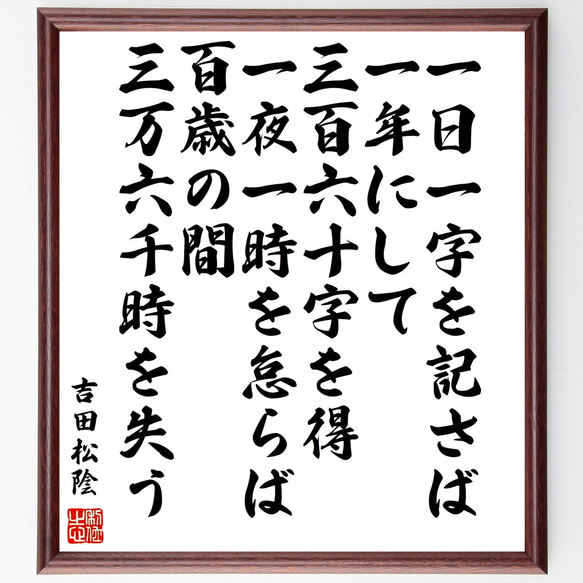 一日一字を記さば
一年にして
三百六十字を得
一夜一時を怠らば
百歳の間
三万六千時を失う
吉田松陰